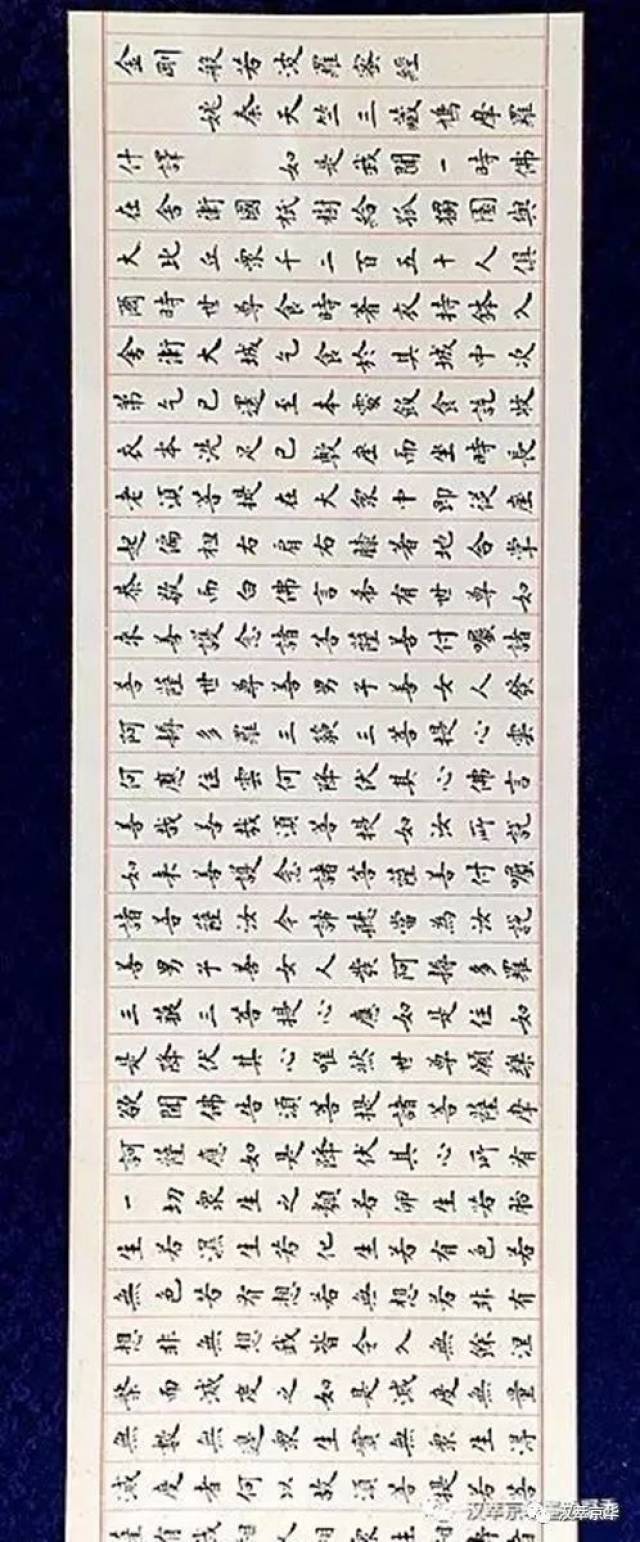 金剛般若波羅蜜經
姚秦天竺三藏鳩摩羅
什譯 如是我聞一時佛
在舍衛國祇樹給孤獨園與
大比丘眾千二百五十人俱
爾時世尊食時著衣持鉢入
舍衛大城乞食於其城中次
弟乞已還至本處飯食訖收
衣本洗足已敷座而坐時長
老須菩提在大眾中即從座
起偏袒右肩右膝著地合掌
恭敬而白佛言希有世尊如
來善護念諸菩薩善付囑諸
菩薩世尊善男子善女人發
阿耨多羅三藐三菩提心雲
何應住雲何降伏其心佛言
善哉善哉須菩提如汝所說
如來善護念諸菩薩善付囑
諸菩薩汝今諦聽當為汝說
善男子善女人發阿耨多羅
三藐三菩提心應如是住如
是降伏其心唯然世尊願樂
欲聞佛告須菩提諸菩薩摩
訶薩應如是降伏其心所有
一切眾生之類若卵生若胎
生若濕生若化生若有色若
無色若有想若無想若非有
想非無想我皆令入無餘涅
槃而滅度之如是滅度無量
無數無邊眾生實無眾生得
滅度者何以故須菩提若菩
汉萃京华